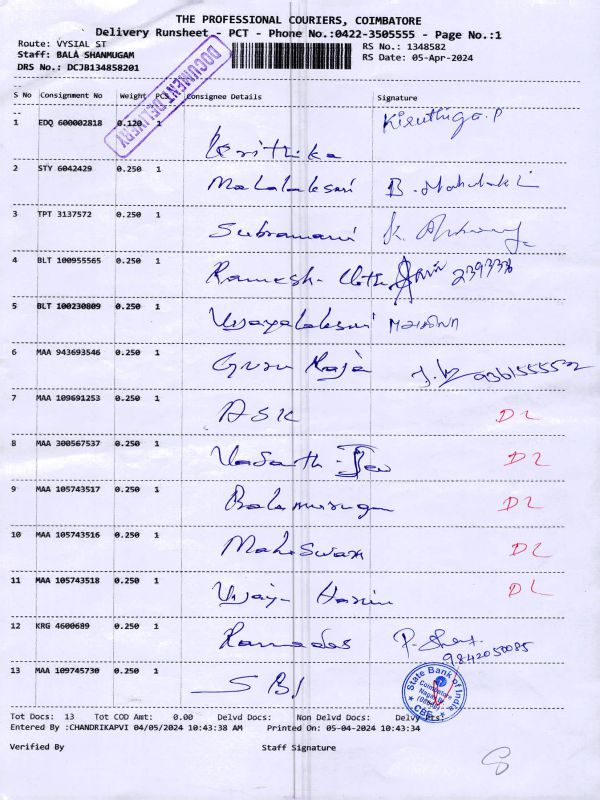 THE PROFESSIONAL COURIERS, COIMBATORE
Delivery Runsheet - PCT - Phone No.:0422-3505555 - Page No.:1
Route: VYSIAL ST RS No.: 1348582
Staff: BALA SHANMUGAM RS Date: 05-Apr-2024
DRS No.: DCJB134858201
DOCUMENT DELIVERY
S No Consignment No Weight PCS Consignee Details Signature
1 EDQ 600002818 0.120 1 Krithika Kiruthiga.P
2 STY 6042429 0.250 1 Mahalaksmi
3 TPT 3137572 0.250 1 Subramani
4 BLT 100955565 0.250 1 Ramesh Cloth
5 BLT 100230809 0.250 1 Vijayalaksmi
6 MAA 943693546 0.250 1 Guru Raja
7 MAA 109691253 0.250 1 ASK DL
8 MAA 300567537 0.250 1 Vasanth DL
9 MAA 105743517 0.250 1 Balamurugan DL
10 MAA 105743516 0.250 1 Maheswari DL
11 MAA 105743518 0.250 1 Vijaya DL
12 KRG 4600689 0.250 1 Ramadas
9842050085
13 MAA 109745730 0.250 1 SBI State Bank of India
Coimbatore
CBE
Tot Docs: 13 Tot COD Amt: 0.00 Delvd Docs: Non Delvd Docs: Delvy Pcs:
Entered By :CHANDRIKAPVI 04/05/2024 10:43:38 AM Printed On: 05-04-2024 10:43:34
Verified By Staff Signature